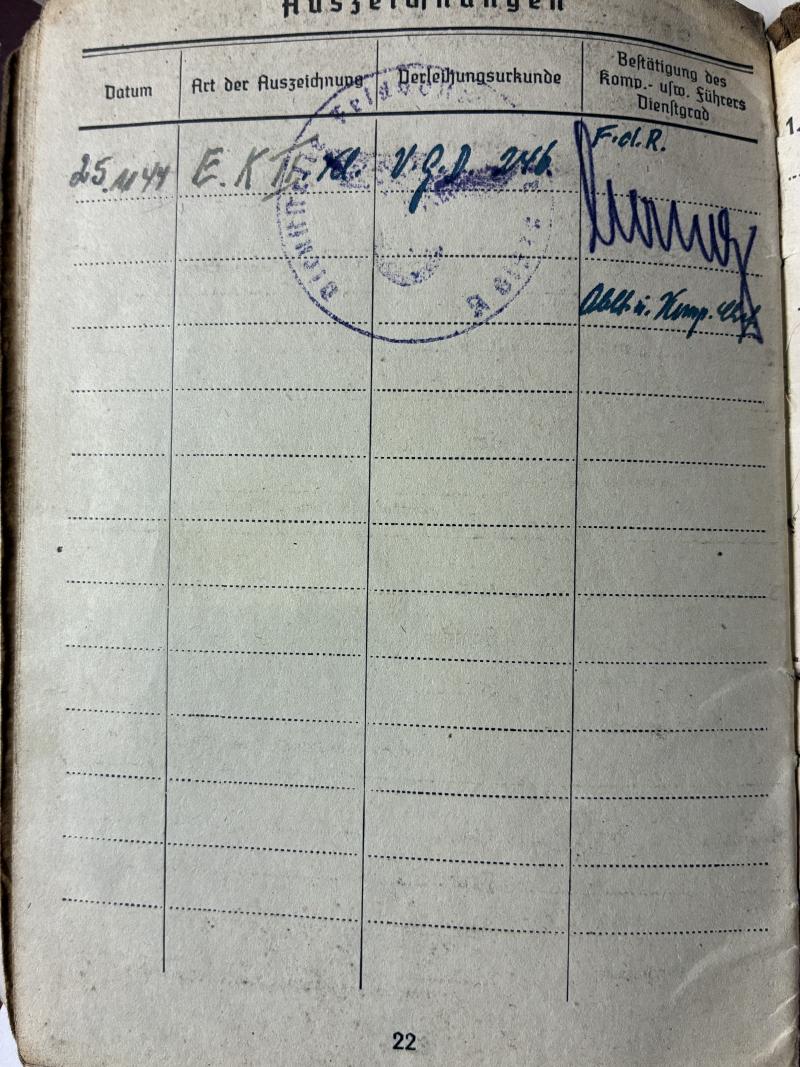 Auszeichnungen
Datum
Art der Auszeichnung
Verleihungsurkunde
Bestätigung des
Komp.- usw. Führers
Dienstgrad
25.11.44 E. K II. Kl. V.G.D. 246. F.d.R.
Oblt. u. Komp. Chef
Dienststelle Feldpost
1.
22